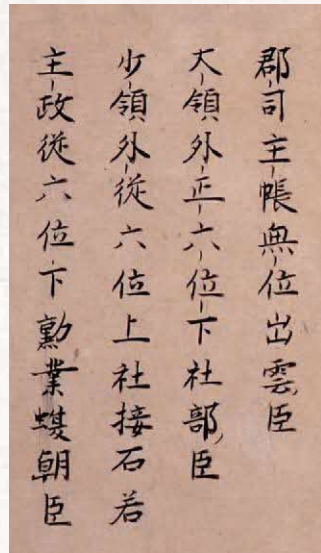 郡司主帳無位出雲臣
大領外正六位下社部臣
少領外従六位上社接石若
主政従六位下勲業蝮朝臣